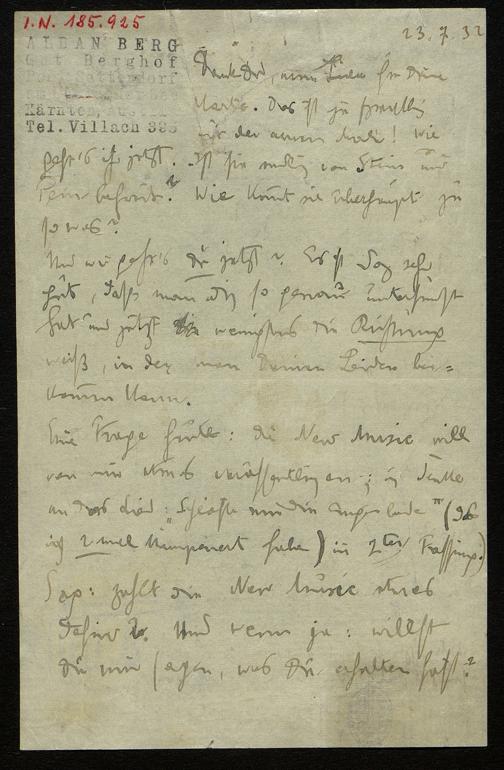 I.N. 185.925
23.7.32
ALBAN BERG
Gut Berghof
Post Sattendorf
Kärnten, Austria
Tel. Villach 385
Dank Dir, mein Lieber für Deine
Karte. Das ist ja
mit der armen Mali! Wie
geht's ihr jetzt. Ist sie von Stein und
befreit? Wie kommt sie überhaupt zu
so was?
Und wie geht's Dir jetzt? Es ist sehr
gut, daß man Dich so genau untersucht
hat und jetzt wenigstens die Richtung
weiß, in der man Deinen Leiden bei=
kommen kann.
Eine Frage heute: die New Music will
von mir etwas veröffentlichen; ich denke
an das Lied: "Schließe mir die Augen beide" (das
ich 2 mal komponiert habe) in 2ter Fassung.)
Sag: zahlt die New Music etwas
dafür? Und wenn ja: willst
Du mir sagen, was Du erhalten hast?